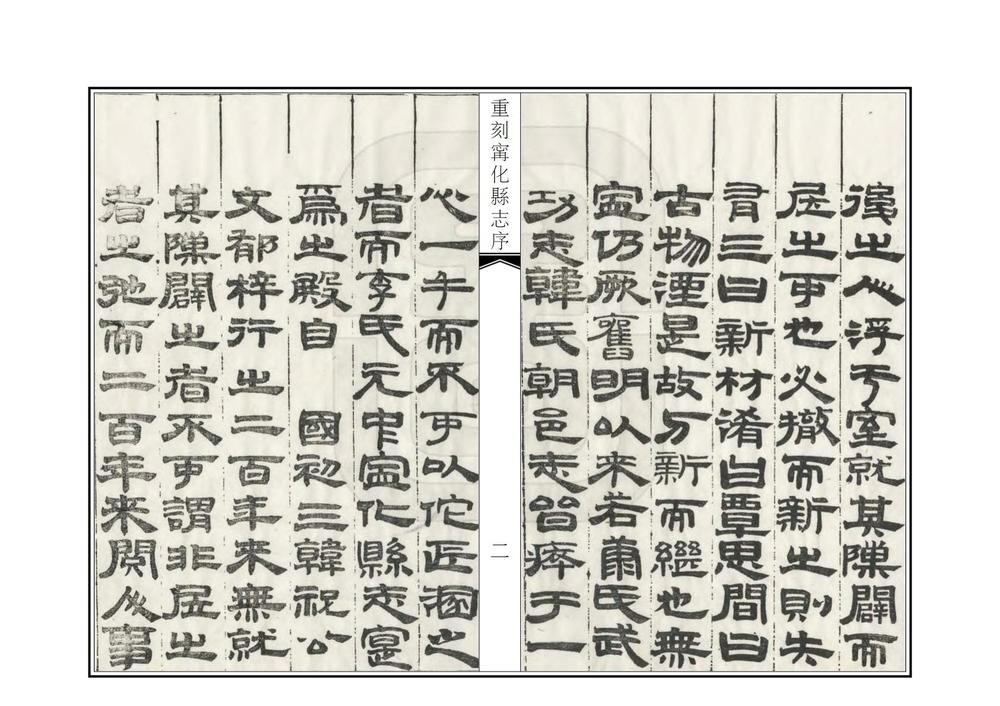 後之人浮于室就其隙闢而
居之可也必撤而新之則失
有三曰新材淆曰覃思間曰
古物湮是故与新而繼也無
寍仍厥舊明以来若康氏武
功志韓氏朝邑志皆瘁于一
重刻甯化縣志序
二
心一手而不可以佗匠溷之
者而李氏元中寍化縣志寔
爲之殿自 國初三韓祝公
文郁梓行之二百年来無就
其隙闢之者不可謂非居之
者之弛而二百年来閱人事